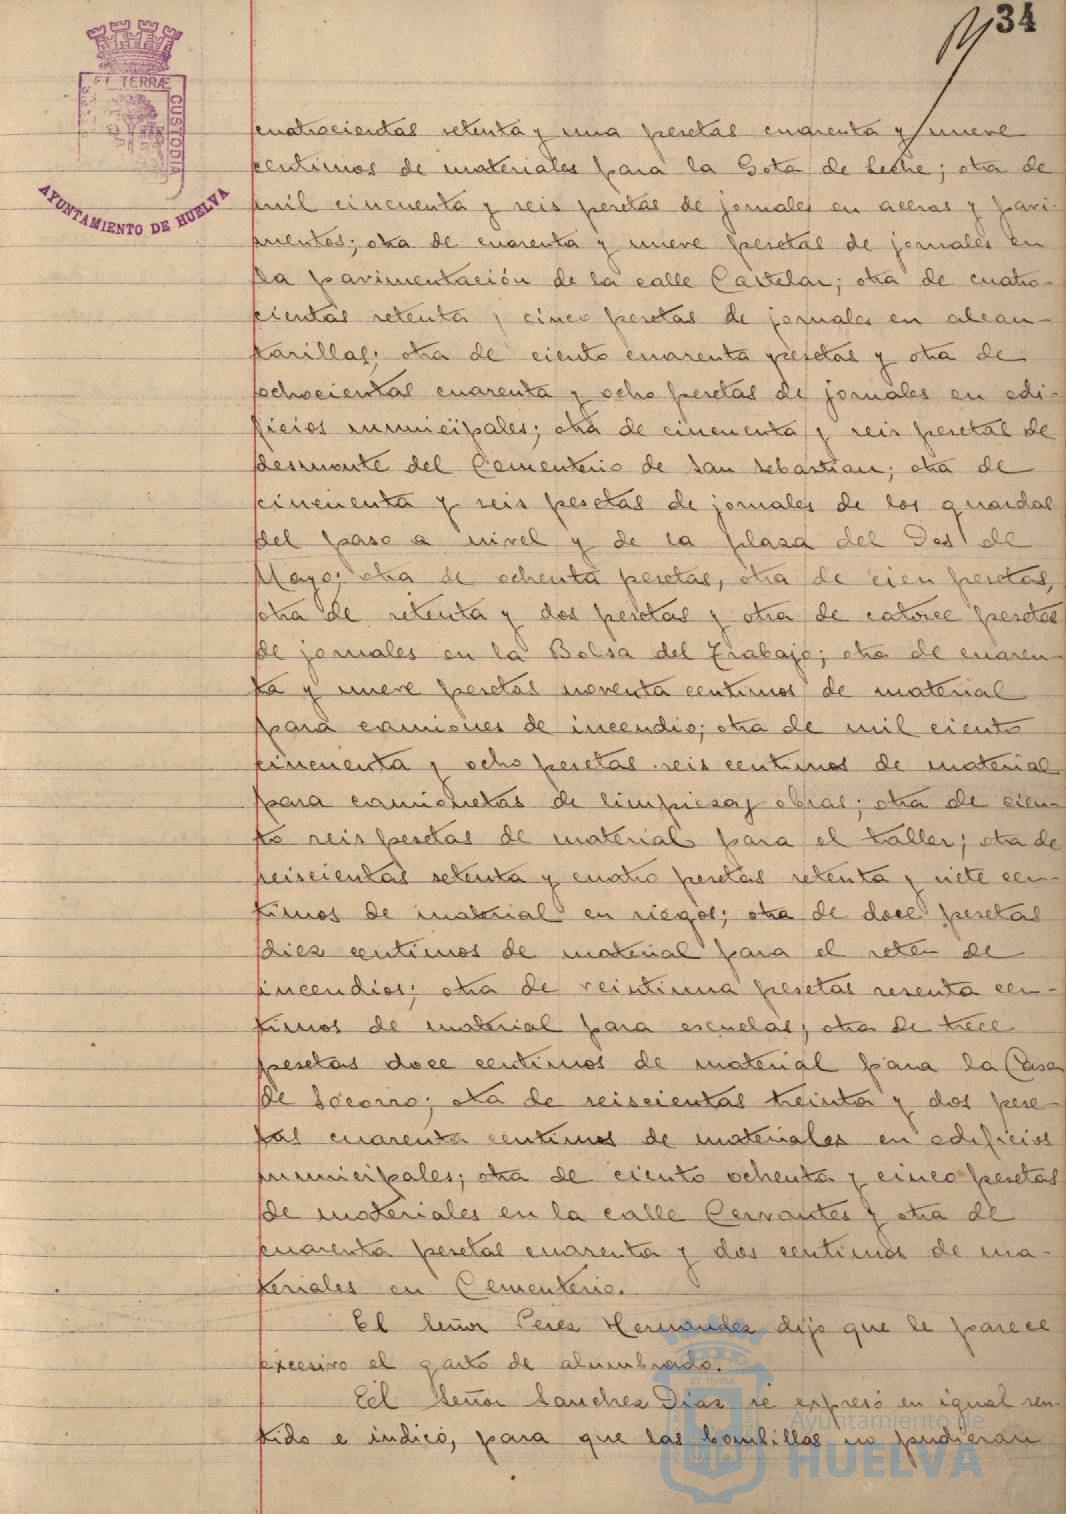 34
ET TERRÆ
CUSTODIA
AYUNTAMIENTO DE HUELVA
cuatrocientas setenta y una pesetas cuarenta y nueve
centimos de materiales para la Gota de Leche; otra de
mil cincuenta y seis pesetas de jornales en aceras y pavi-
mentos; otra de cuarenta y nueve pesetas de jornales en
la pavimentación de la calle Castelar; otra de cuatro-
cientas setenta y cinco pesetas de jornales en alcan-
tarillas; otra de ciento cuarenta pesetas y otra de
ochocientas cuarenta y ocho pesetas de jornales en edi-
ficios municipales; otra de cincuenta y seis pesetas de
desmonte del Cementerio de San Sebastian; otra de
cincuenta y seis pesetas de jornales de los guardas
del paso a nivel y de la plaza del Dos de
Mayo; otra de ochenta pesetas, otra de cien pesetas,
otra de setenta y dos pesetas y otra de catorce pesetas
de jornales en la Bolsa del Trabajo; otra de cuaren-
ta y nueve pesetas noventa centimos de material
para camiones de incendio; otra de mil ciento
cincuenta y ocho pesetas seis centimos de material
para camionetas de limpieza y obras; otra de cien-
to seis pesetas de material para el taller; otra de
seiscientas setenta y cuatro pesetas setenta y siete cen-
timos de material en riegos; otra de doce pesetas
diez centimos de material para el reten de
incendios; otra de veintiuna pesetas sesenta cen-
timos de material para escuelas; otra de trece
pesetas doce centimos de material para la Casa
de Socorro; otra de seiscientas treinta y dos pese-
tas cuarenta centimos de materiales en edificios
municipales; otra de ciento ochenta y cinco pesetas
de materiales en la calle Cervantes y otra de
cuarenta pesetas cuarenta y dos centimos de ma-
teriales en Cementerio.
El Señor Perez Hernandez dijo que le parece
excesivo el gasto de alumbrado.
El Señor Sanchez Diaz se expresó en igual sen-
tido e indicó, para que las bombillas no pudieran
Ayuntamiento de
HUELVA